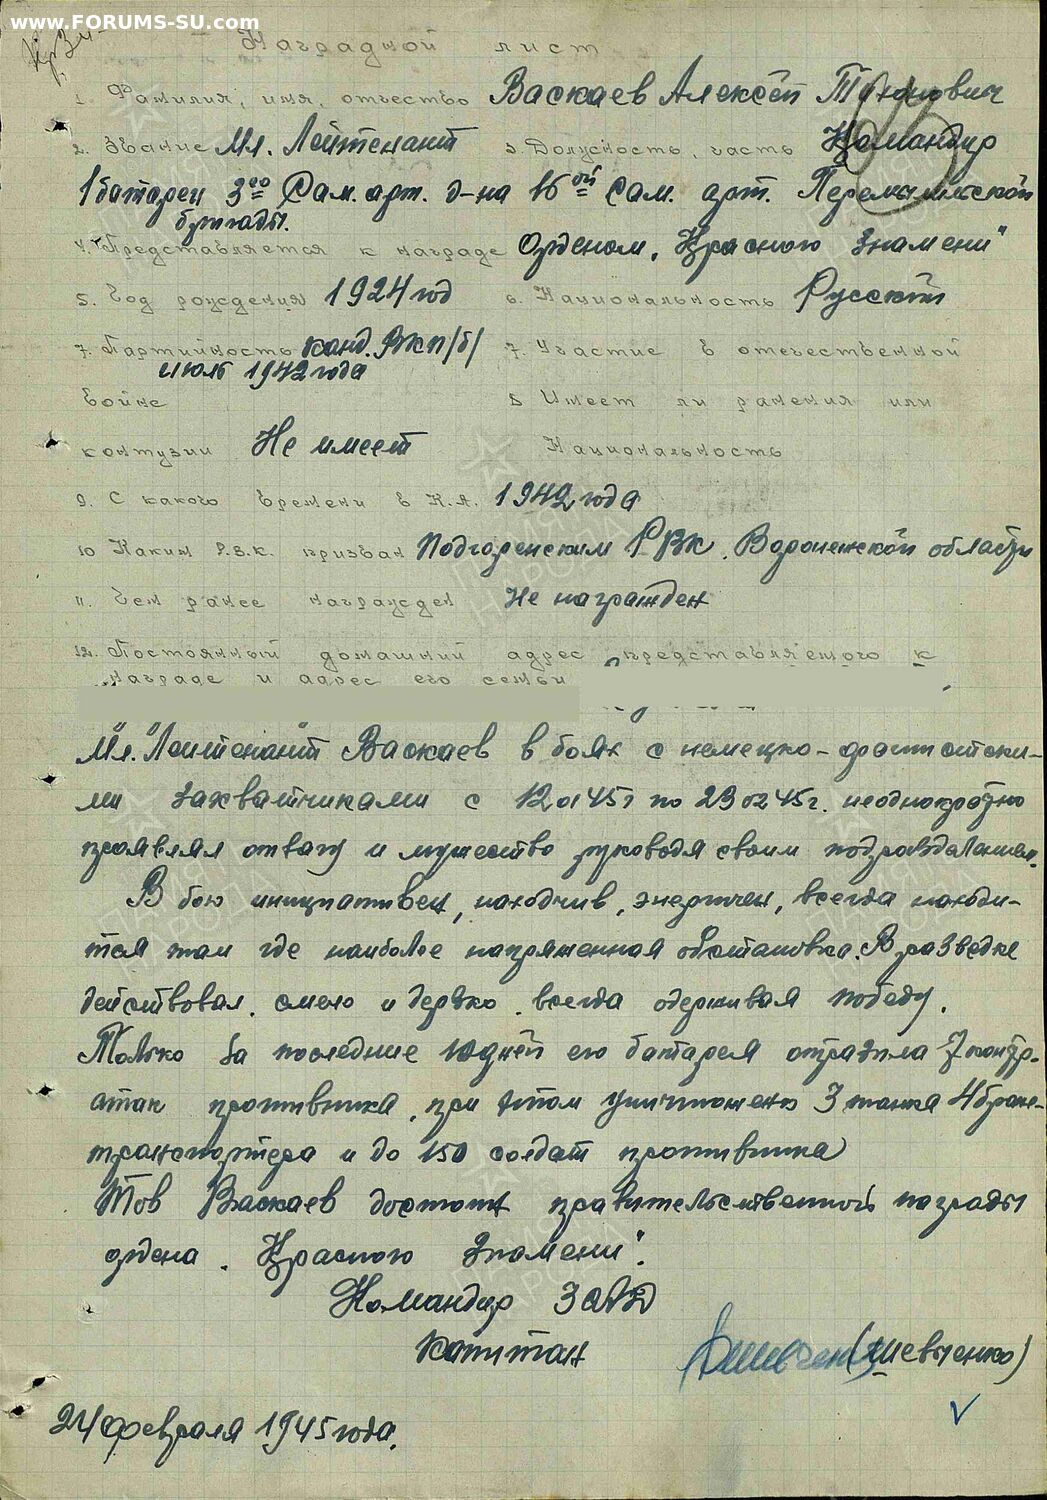 www.FORUMS-SU.com
КрЗн
Наградной лист
1. Фамилия, имя, отчество Васкаев Алексей Тихонович
2. Звание Мл. Лейтенант 3. Должность, часть Командир
1 батареи 3го Сам. арт. д-на 16ой Сам. арт. Перемышльской
бригады.
4. Представляется к награде Орденом „Красного Знамени"
5. Год рождения 1924 год 6. Национальность Русский
7. Партийность канд. ВКП/б/ 7. Участие в отечественной
июль 1942 года
войне 8 Имеет ли ранения или
контузии Не имеет Национальность
9. С какого времени в К.А. 1942 года
10 Каким Р.В.К. призван Подгоренским РВК, Воронежской области
11. Чем ранее награжден Не награжден
12. Постоянный домашний адрес представляемого к
награде и адрес его семьи
Мл. Лейтенант Васкаев в боях с немецко-фашистски-
ми захватчиками с 12 01 45 г по 23 02 45 г. неоднократно
проявлял отвагу и мужество руководя своим подразделением.
В бою инициативен, находчив, энергичен, всегда находи-
тся там где наиболее напряженная обстановка. В разведке
действовал смело и дерзко, всегда одерживая победу.
Только за последние 10 дней его батарея отразила 7 контр-
атак противника, при этом уничтожено 3 танка 4 броне-
транспортера и до 150 солдат противника
Тов Васкаев достоин правительственной награды
ордена „Красного Знамени".
Командир 3 САД
Капитан (Шевченко)
24 февраля 1945 года.